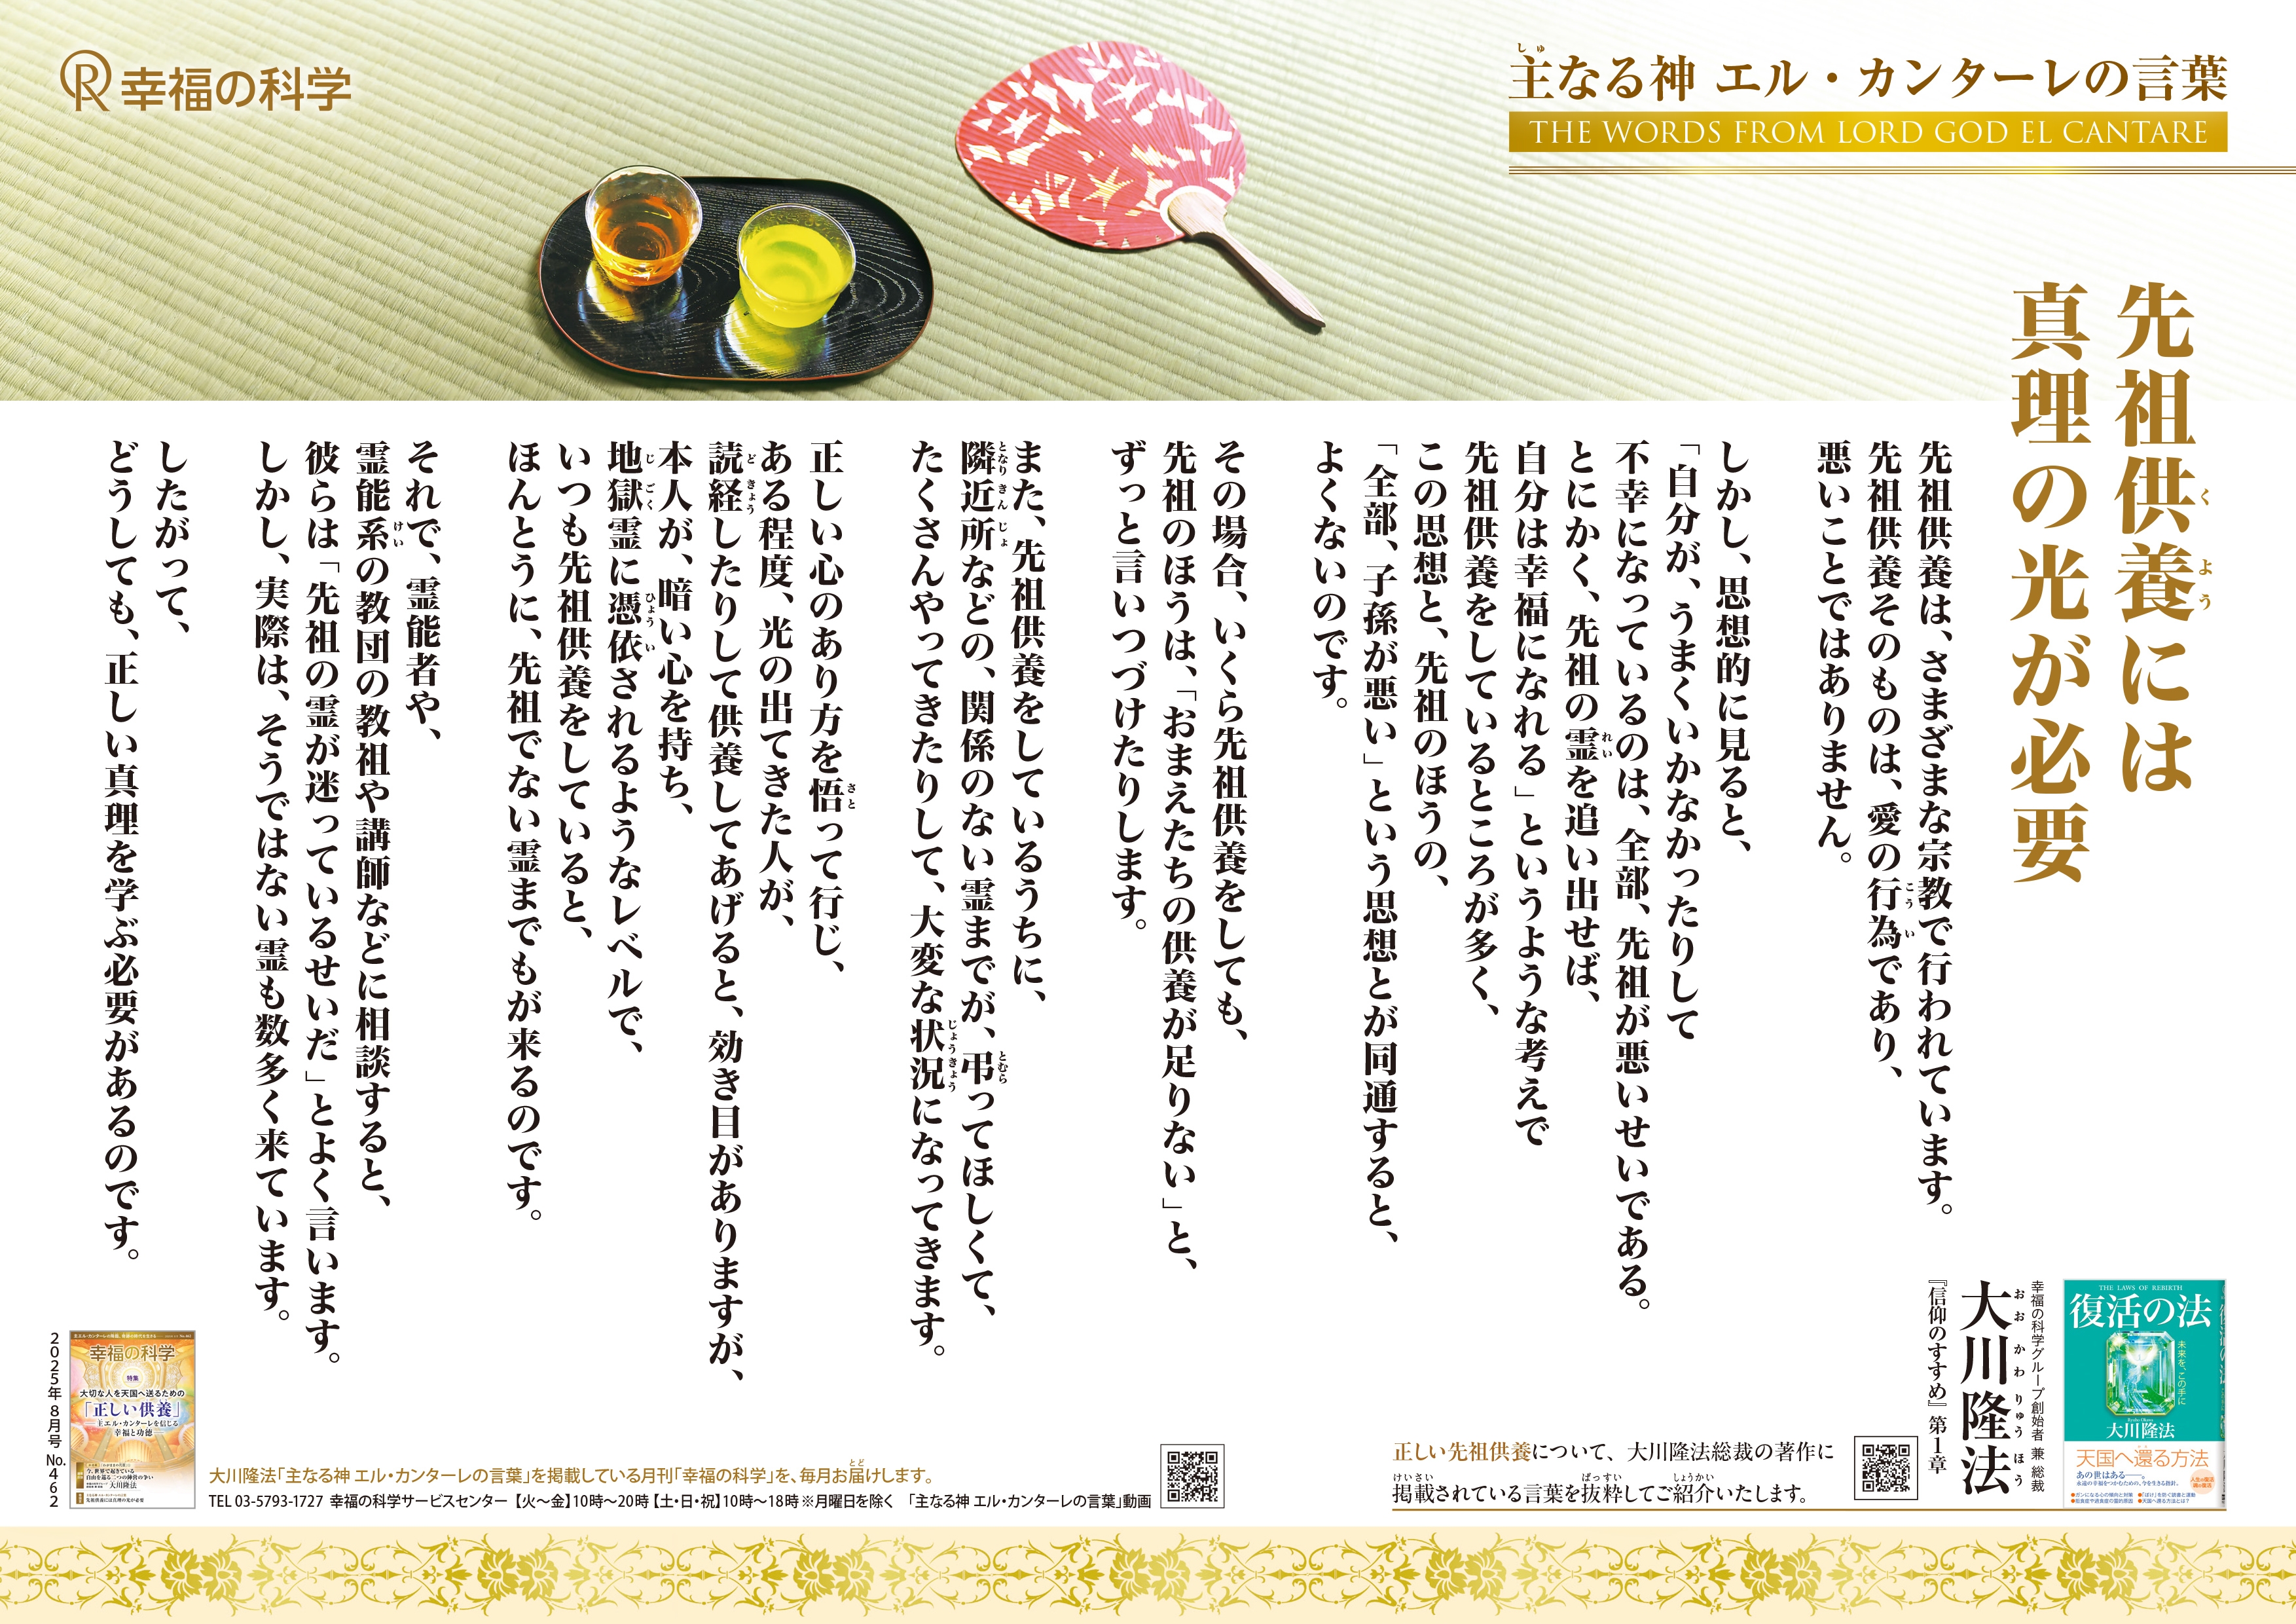 幸福の科学
主なる神 エル・カンターレの言葉
THE WORDS FROM LORD GOD EL CANTARE
先祖供養には
真理の光が必要
先祖供養は、さまざまな宗教で行われています。
先祖供養そのものは、愛の行為であり、
悪いことではありません。
しかし、思想的に見ると、
「自分が、うまくいかなかったりして
不幸になっているのは、全部、先祖が悪いせいである。
とにかく、先祖の霊を追い出せば、
自分は幸福になれる」というような考えで
先祖供養をしているところが多く、
この思想と、先祖のほうの、
「全部、子孫が悪い」という思想とが同通すると、
よくないのです。
その場合、いくら先祖供養をしても、
先祖のほうは、「おまえたちの供養が足りない」と、
ずっと言いつづけたりします。
また、先祖供養をしているうちに、
隣近所などの、関係のない霊までが、弔ってほしくて、
たくさんやってきたりして、大変な状況になってきます。
正しい心のあり方を悟って行じ、
ある程度、光の出てきた人が、
読経したりして供養してあげると、効き目がありますが、
本人が、暗い心を持ち、
地獄霊に憑依されるようなレベルで、
いつも先祖供養をしていると、
ほんとうに、先祖でない霊までもが来るのです。
それで、霊能者や、
霊能系の教団の教祖や講師などに相談すると、
彼らは「先祖の霊が迷っているせいだ」とよく言います。
しかし、実際は、そうではない霊も数多く来ています。
したがって、
どうしても、正しい真理を学ぶ必要があるのです。
THE LAWS OF REBIRTH
復活の法
未来を、この手に
大川隆法
天国へ還る方法
あの世はある――。
幸福の科学グループ創始者 兼 総裁
大川隆法
おおかわりゅうほう
『信仰のすすめ』第1章
正しい先祖供養について、大川隆法総裁の著作に
掲載されている言葉を抜粋してご紹介いたします。
2025年8月号 No.462
幸福の科学
特集
大切な人を天国へ送るための
「正しい供養」
主エル・カンターレを信じる
幸福と功徳
大川隆法
大川隆法「主なる神 エル・カンターレの言葉」を掲載している月刊「幸福の科学」を、毎月お届けします。
TEL 03-5793-1727 幸福の科学サービスセンター 【火～金】10時～20時【土・日・祝】10時～18時 ※月曜日を除く 「主なる神 エル・カンターレの言葉」動画